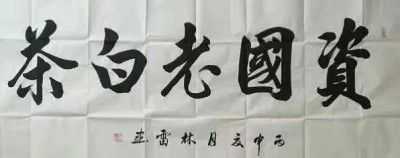 資國老白茶
丙申夏月林雷